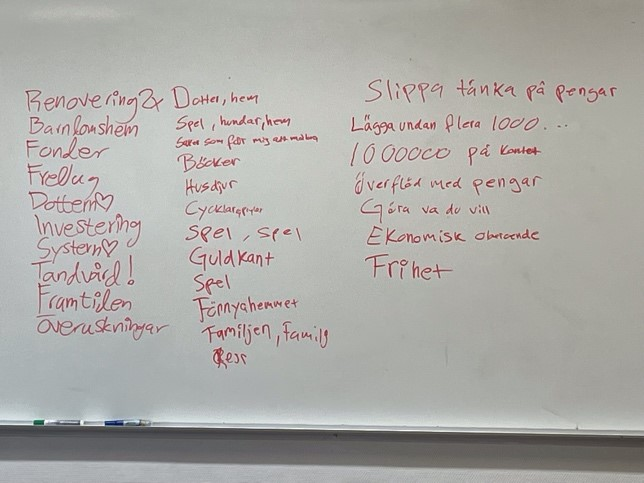 Renovering 2x
Barndomshem
Fonder
Fredag
Dottern♡
Investering
System♡
Tandvård!
Framtiden
Överuskningar
Dotter, hem
Spel, hundar, hem
Saker som får mig att
Böcker
Husdjur
Spel, spel
Guldkant
Spel
Förnyahemmet
Familjen, Familj
Resr
Slippa tänka på pengar
Lägga undan flera 1000...
1000000 på kontot
Överflöd med pengar
Göra va du vill
Ekonomisk oberoende
Frihet